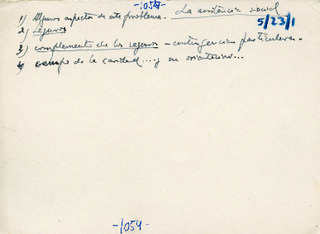 -1054-
1) Algunos aspectos de este problema. La asistencia social
5/23/1
2) seguros
3) complemento de los seguros - contingencias particulares.
4) campo de la caridad .... y su
-1054-